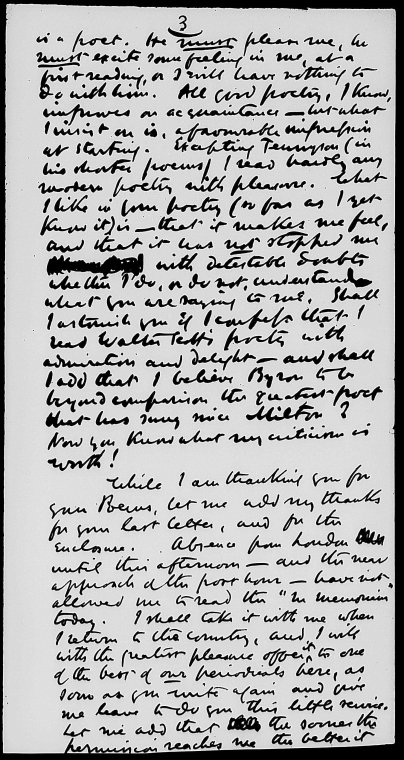 3
is a poet. He must please me, he
must excite some feeling in me, at a
first reading, or I will have nothing to
do with him. All good poetry, I know,
improves on acquaintance – but what
I insist on is, a favourable impression
at starting. Excepting Tennyson (in
his shorter poems) I read hardly any
modern poetry with pleasure. What
I like in your poetry (so far as I yet
know it) is – that it makes me feel,
and that it has not stopped me
with detestable doubts
whether I do, or do not, understand
what you are saying to me. Shall
I astonish you if I confess that I
read Walter Scott's poetry with
admiration and delight – and shall
I add that I believe Byron to be
beyond comparison the greatest poet
that has sung since Milton?
Now you know what my criticism is
worth!
While I am thanking you for
your Poems, let me add my thanks
for your last letter, and for the
enclosure. Absence from London
until this afternoon – and the near
approach of the post hour – have not
allowed me to read the "In Memoriam"
today. I shall take it with me when
I return to the country, and, I will
with the greatest pleasure offer it to one
of the best of our periodicals here, as
soon as you write again and give
me leave to do you this little service.
Let me add that the sooner the
permission reaches me the better it